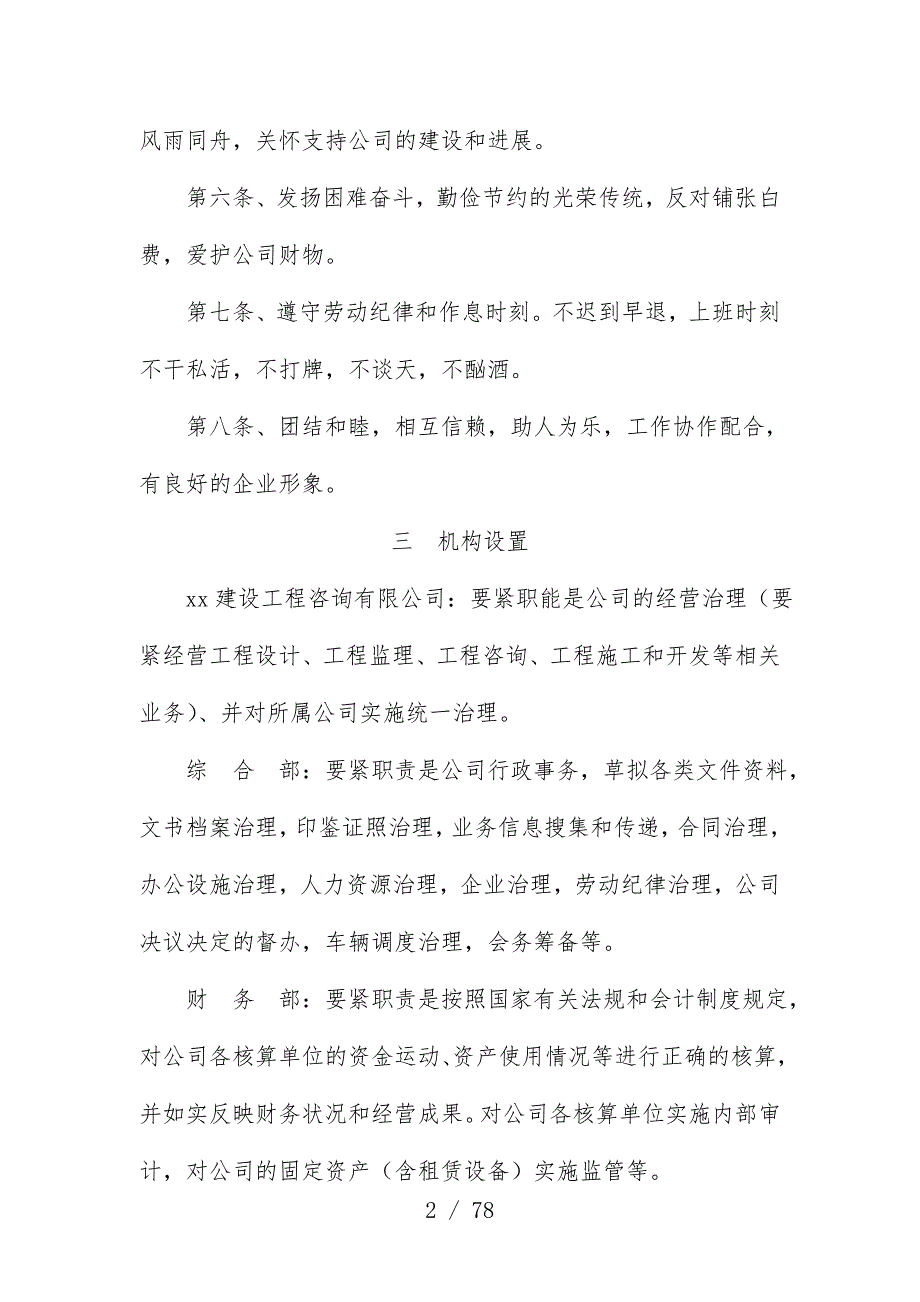 风雨同舟，关怀支持公司的建设和进展。
第六条、发扬困难奋斗，勤俭节约的光荣传统，反对铺张白
费，爱护公司财物。
第七条、遵守劳动纪律和作息时刻。不迟到早退，上班时刻
不干私活，不打牌，不谈天，不酗酒。
第八条、团结和睦，相互信赖，助人为乐，工作协作配合，
有良好的企业形象。
三　机构设置
xx 建设工程咨询有限公司：要紧职能是公司的经营治理（要
紧经营工程设计、工程监理、工程咨询、工程施工和开发等相关
业务）、并对所属公司实施统一治理。
综　合　部：要紧职责是公司行政事务，草拟各类文件资料，
文书档案治理，印鉴证照治理，业务信息搜集和传递，合同治理，
办公设施治理，人力资源治理，企业治理，劳动纪律治理，公司
决议决定的督办，车辆调度治理，会务筹备等。
财　务　部：要紧职责是按照国家有关法规和会计制度规定，
对公司各核算单位的资金运动、资产使用情况等进行正确的核算，
并如实反映财务状况和经营成果。对公司各核算单位实施内部审
计，对公司的固定资产（含租赁设备）实施监管等。
2 / 78